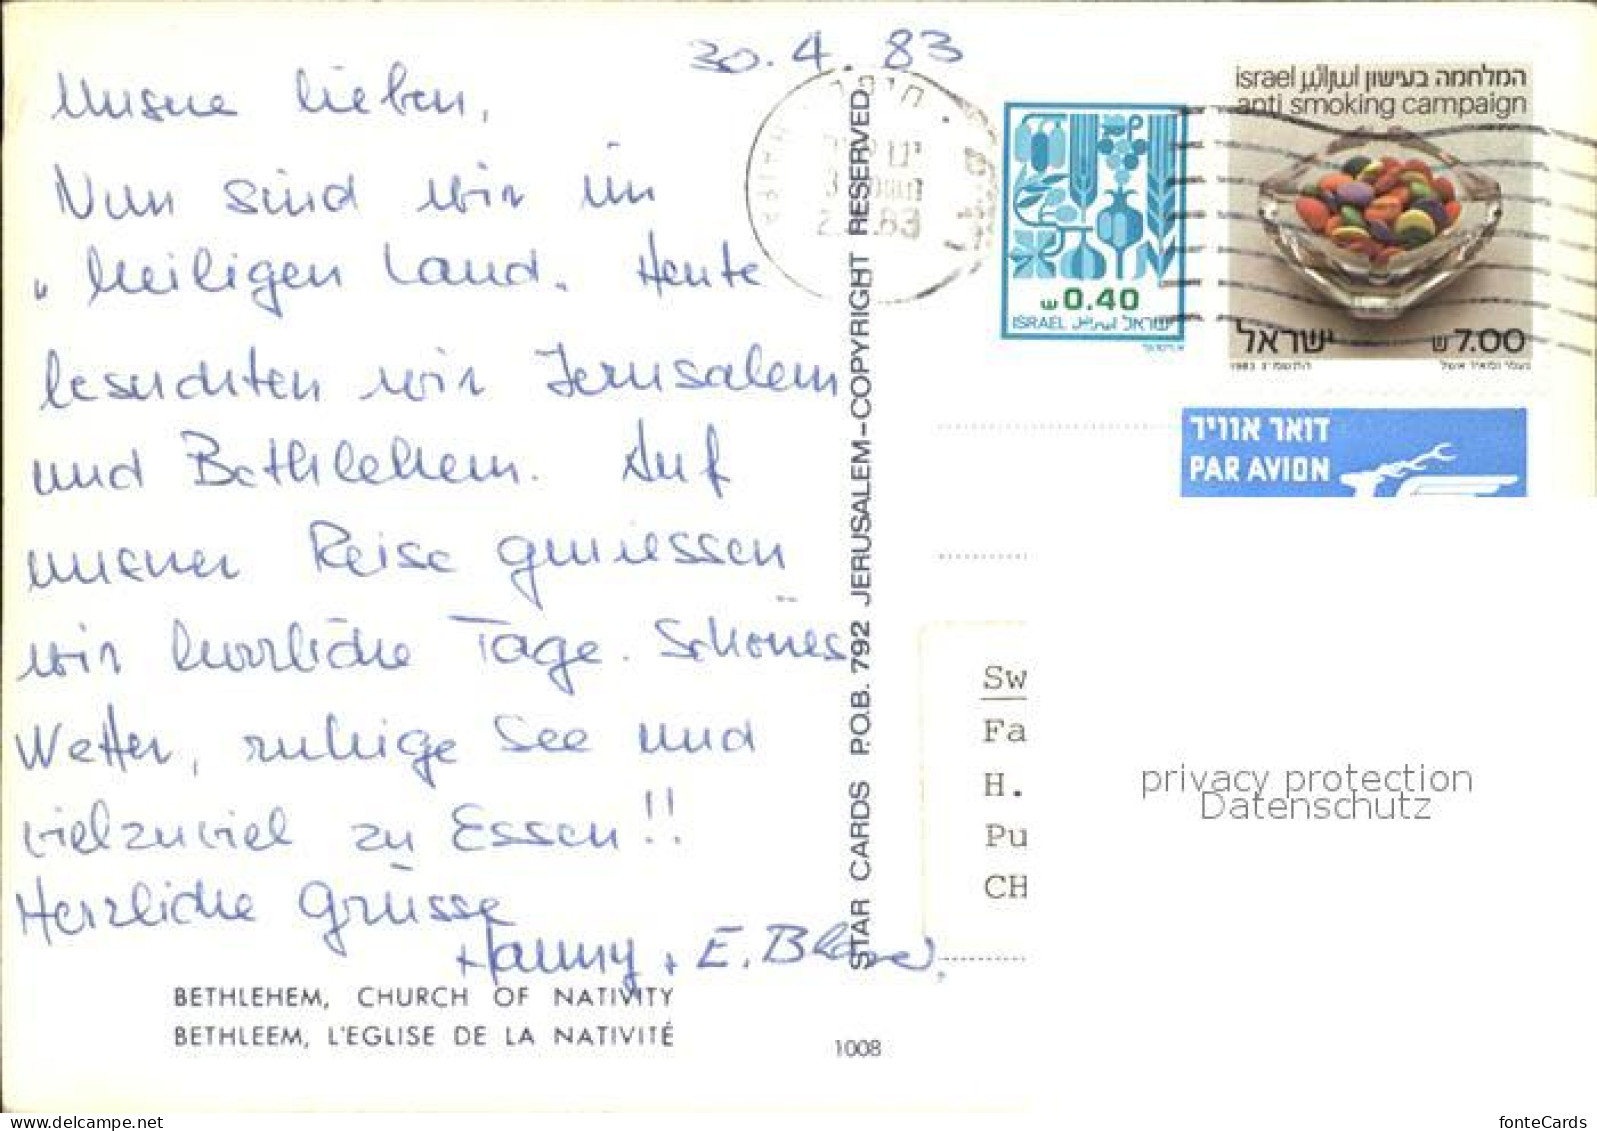 30.4.83
Unsere lieben,
Nun sind wir im
"heiligen Land. Heute
besuchten wir Jerusalem
und Bethlehem. Auf
unserer Reise geniessen
wir herrliche Tage. Schönes
Wetter, ruhige See und
vielzuviel zu Essen!!
Herzliche Grüsse
Hanny + E.
BETHLEHEM, CHURCH OF NATIVITY
BETHLEEM, L'EGLISE DE LA NATIVITÉ
1008
STAR CARDS P.O.B. 792 JERUSALEM-COPYRIGHT RESERVED
HAIFA
חיפה
83
₪0.40
ISRAEL اسرائيل ישראל
israel اسرائيل המלחמה בעישון
anti smoking campaign
ישראל ₪7.00
1983 התשמ"ג
דואר אוויר
PAR AVION
Sw
Fa
H.
Pu
CH
privacy protection
Datenschutz
fonteCards
delcampe.net